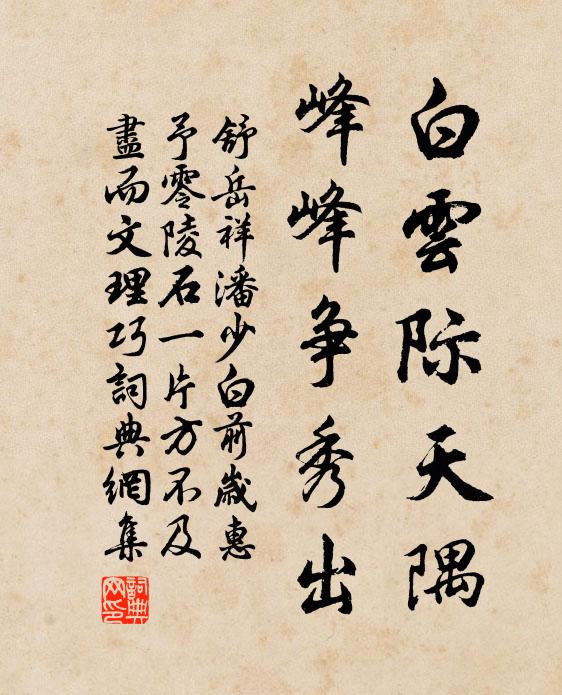 白雲际天隅
峰峰争秀出
舒岳祥潘少白前歲惠
予零陵石一片方不及
盡而文理巧詞典網集
詞典
网印